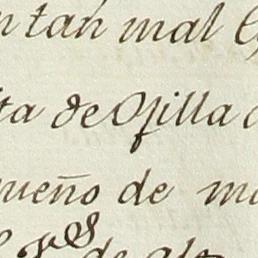 n tan mal
ta de Ojilla
queño de m
de alt